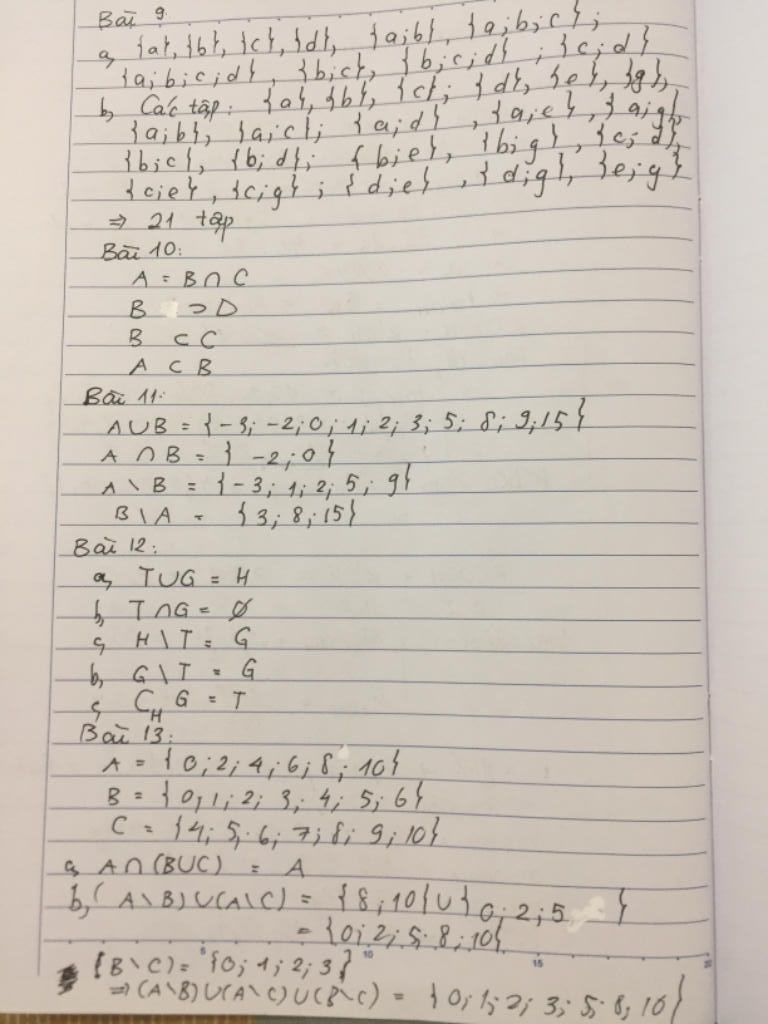 Bài 9
a, {a}, {b}, {c}, {d}, {a;b}, {a;b;c};
{a;b;c;d}, {b;c}, {b;c;d}; {c;d}
b, Các tập: {a}, {b}, {c}; {d}, {e}, {g},
{a;b}, {a;c}; {a;d}, {a;e}, {a;g},
{b;c}, {b;d}; {b;e}, {b;g}, {c;d},
{c;e}, {c;g}; {d;e}, {d;g}, {e;g}
⇒ 21 tập
Bài 10:
A = B ∩ C
B ⊃ D
B ⊂ C
A ⊂ B
Bài 11:
A∪B = {-3; -2; 0; 1; 2; 3; 5; 8; 9; 15}
A ∩ B = { -2; 0}
A \ B = {-3; 1; 2; 5; 9}
B \ A = {3; 8; 15}
Bài 12:
a, T∪G = H
b, T∩G = ∅
c, H \ T = G
b, G \ T = G
c, C_H G = T
Bài 13:
A = {0; 2; 4; 6; 8; 10}
B = {0; 1; 2; 3; 4; 5; 6}
C = {4; 5; 6; 7; 8; 9; 10}
a, A∩(B∪C) = A
b, (A\B)∪(A\C) = {8; 10}∪{0; 2; 5 }
= {0; 2; 5; 8; 10}
5 10 15 20
(B\C) = {0; 1; 2; 3}
⇒ (A\B)∪(A\C)∪(B\C) = {0; 1; 2; 3; 5; 8; 10}